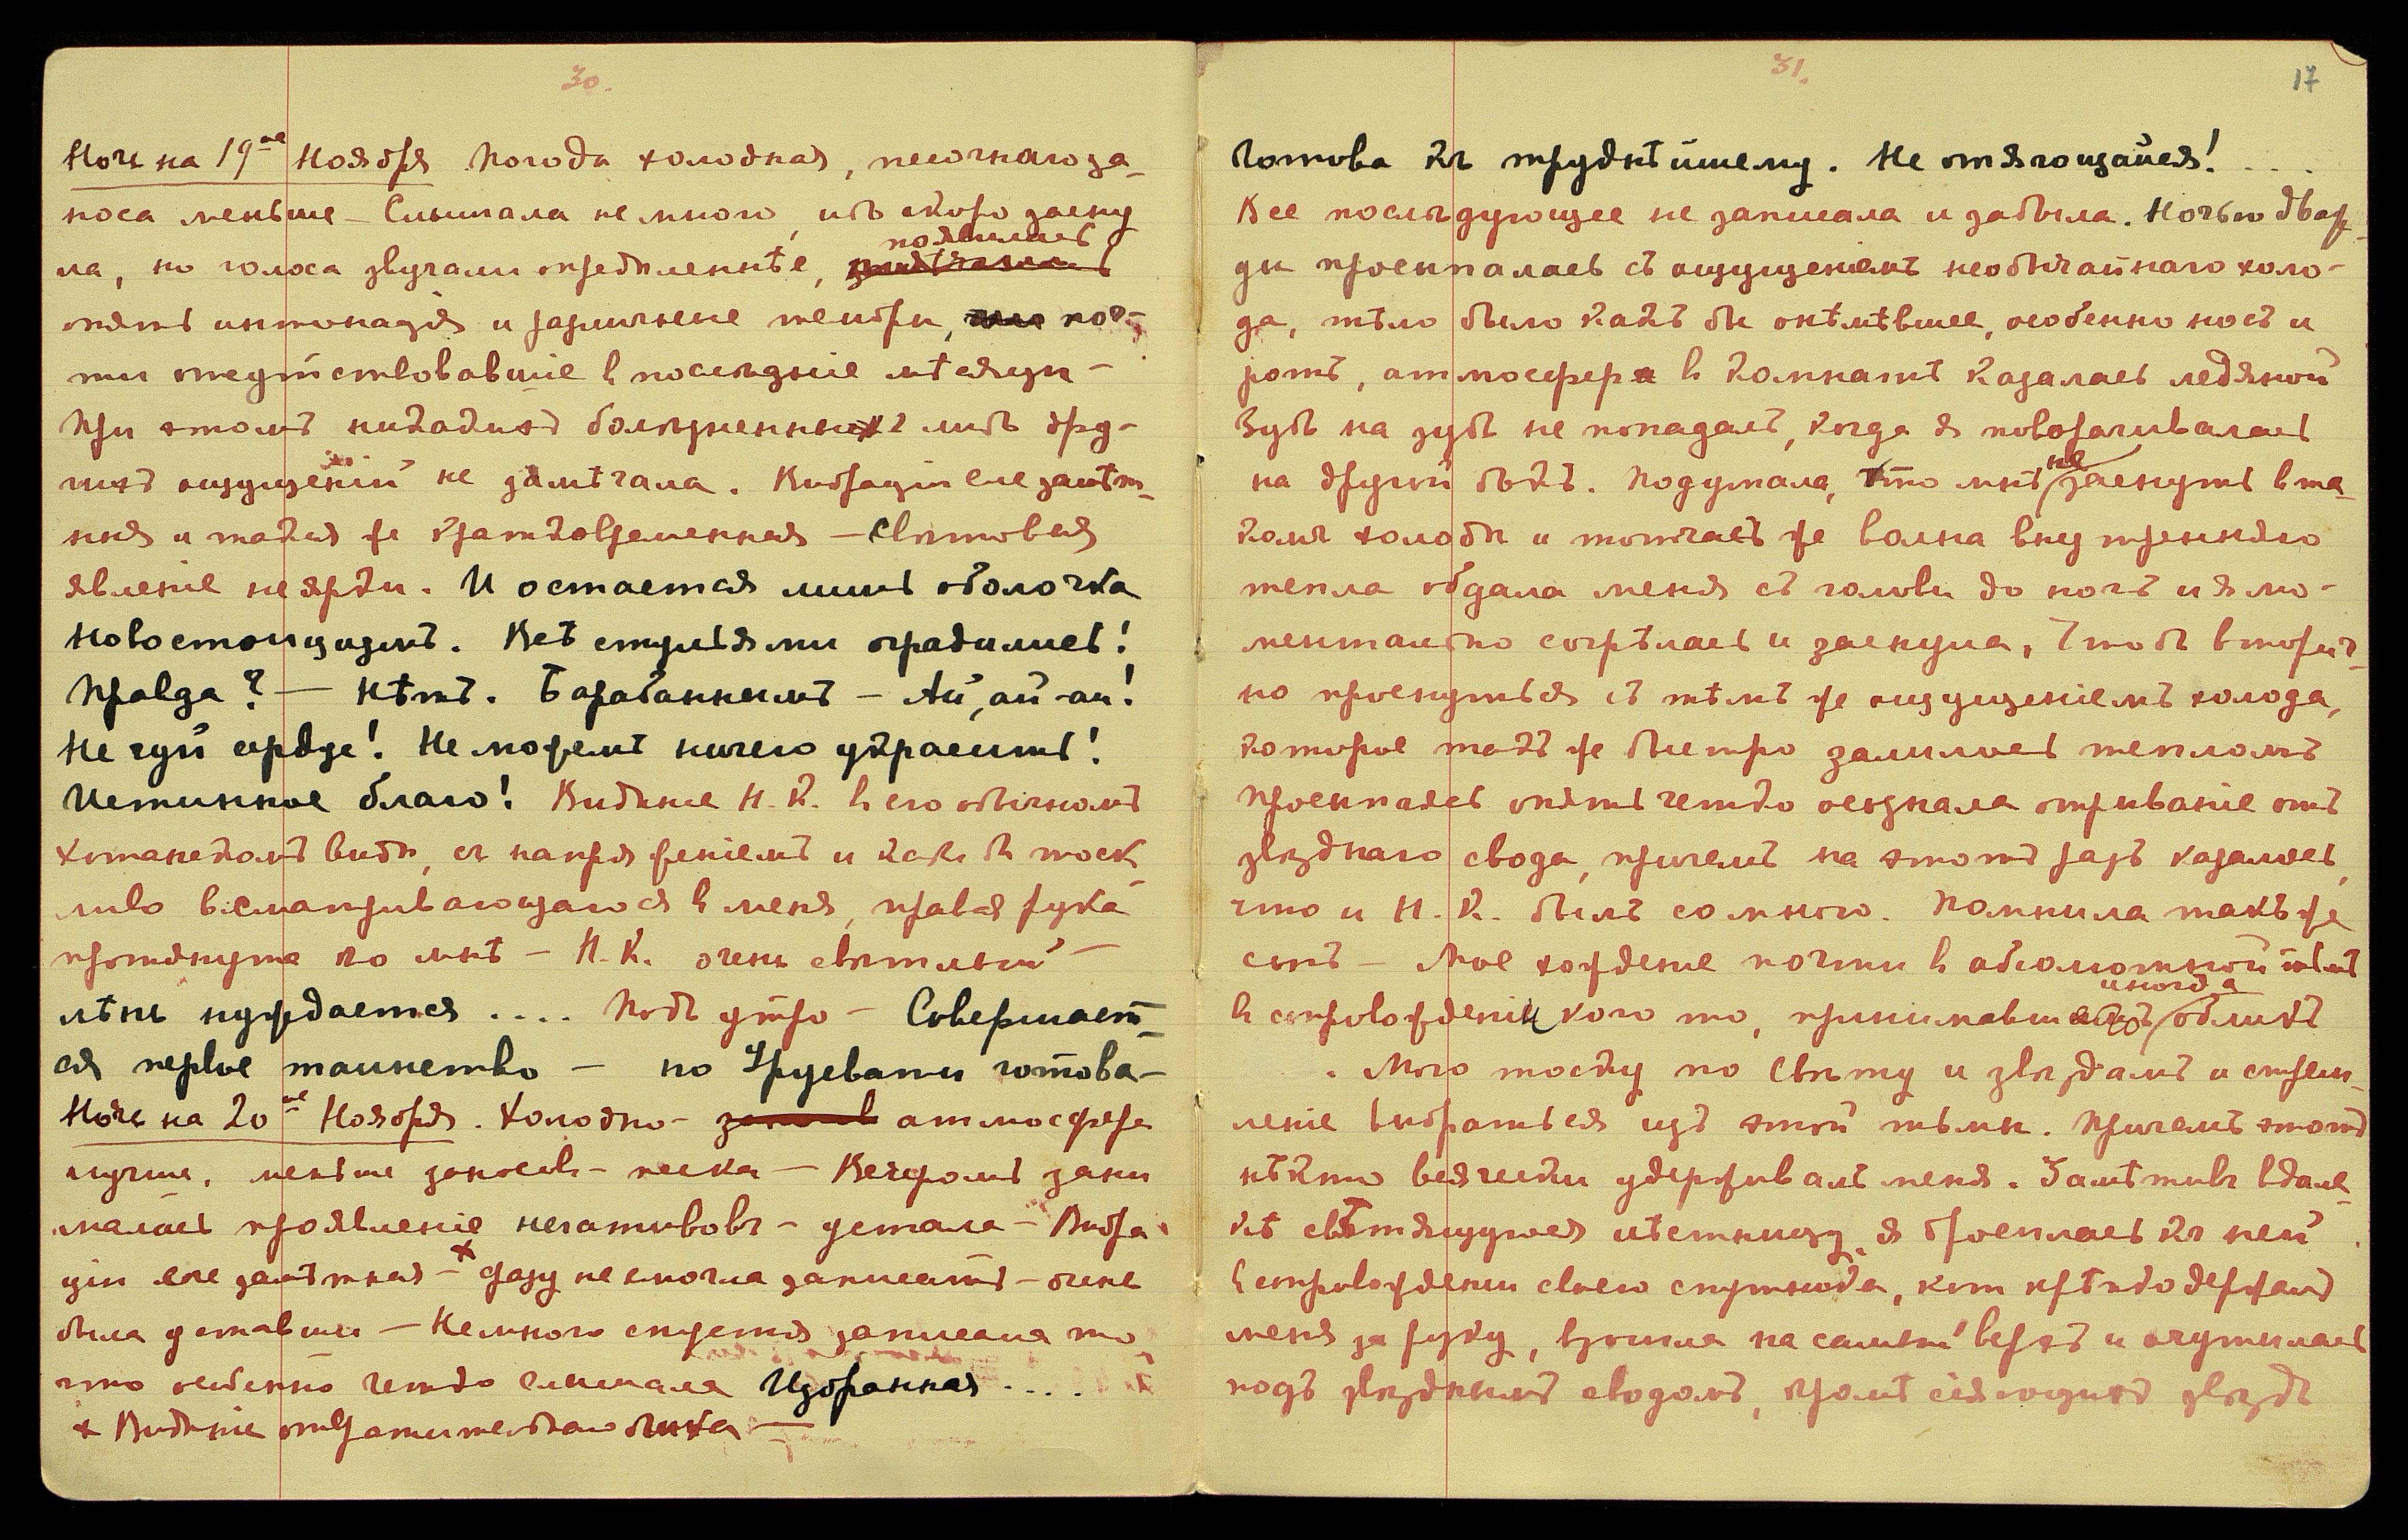 30.
Ночь на 19ое Ноября Погода холодная, песочнаго за-
носа меньше – Слышала не много, ибо скоро засну
ла, но голоса звучали определеннѣе, появилась
опять интонація и различные тембры, поч-
ти отсутствовавшіе в послѣдніе мѣсяцы –
При этомъ никакихъ болѣзненныхъ либо дру-
гихъ ощущеній не замѣчала. Вибраціи еле замѣт-
ныя и такія же кратковременныя – свѣтовыя
явленіе не ярки. И остается лишь оболочка
Новостоицизмъ. Всѣ стульями оградились!
Правда? – Нѣтъ. Барабаннымъ – Ай, ай-ай!
Не чуй сердце! Не можемъ ничего украсить!
Истинное благо! Видѣніе Н.К. в его обычномъ
хотанскомъ видѣ, съ напряженіемъ и какъ бы тоск
ливо всматривающагося в меня, правая рука
протянута ко мнѣ – Н.К. очень свѣтлый –
мѣнь нуждается .... Подъ утро – Совершает-
ся первое таинство – но Урусвати готова –
Ночь на 20ое Ноября. Холодно – атмосфера
лучше, меньше заносовъ – песка – Вечеромъ зани
малась проявленіе негативовъ – устала – Вибра
ціи еле замѣтныя – x фазу не смогла записать – очень
была уставши – Немного спустя записала то
что особенно четко слышала Избранная ....
x Видѣніе отвратительнаго быка –
31.
17
Готова къ труднѣйшему. Не отягощайся! ....
Все послѣдующее не записала и забыла. Ночью два-
ды просыпалась съ ощущеніемъ необычайнаго холо-
да, тѣло было какъ бы онѣмѣвшее, особенно носъ и
ротъ, атмосфера в комнатѣ казалась ледяной
Зубъ на зубъ не попадалъ, когда я поворачивалась
на другой бокъ. Подумала, что мнѣ не заснуть в та-
комъ холодѣ и тотчасъ же волна внутренняго
тепла обдала меня съ головы до ногъ и я мо-
ментально согрѣлась и заснула, чтобъ вторич-
но проснуться съ тѣмъ же ощущеніемъ холода,
которое такъ же быстро залилось тепломъ
Просыпаясь опять четко осознала отрываніе отъ
звѣзднаго свода, причемъ на этотъ разъ казалось,
что и Н.К. былъ со мною. Помнила такъ же
сонъ – Мое хожденіе почти в абсолютной тьмѣ
в сопровожденіи кого то, принимавшего иногда обликъ
. Мою тоску по Свѣту и звѣздамъ и стрем-
леніе выбраться изъ этой тьмы. Причемъ этотъ
нѣкто всячески удерживалъ меня. Замѣтивъ вдале-
кѣ свѣтящуюся лѣстницу, я бросилась къ ней
в сопровожденіи своего спутника, кот крѣпко держалъ
меня за руку, взошла на самый верхъ и очутилась
подъ звѣзднымъ сводомъ, кромѣ сіяющихъ звѣздъ